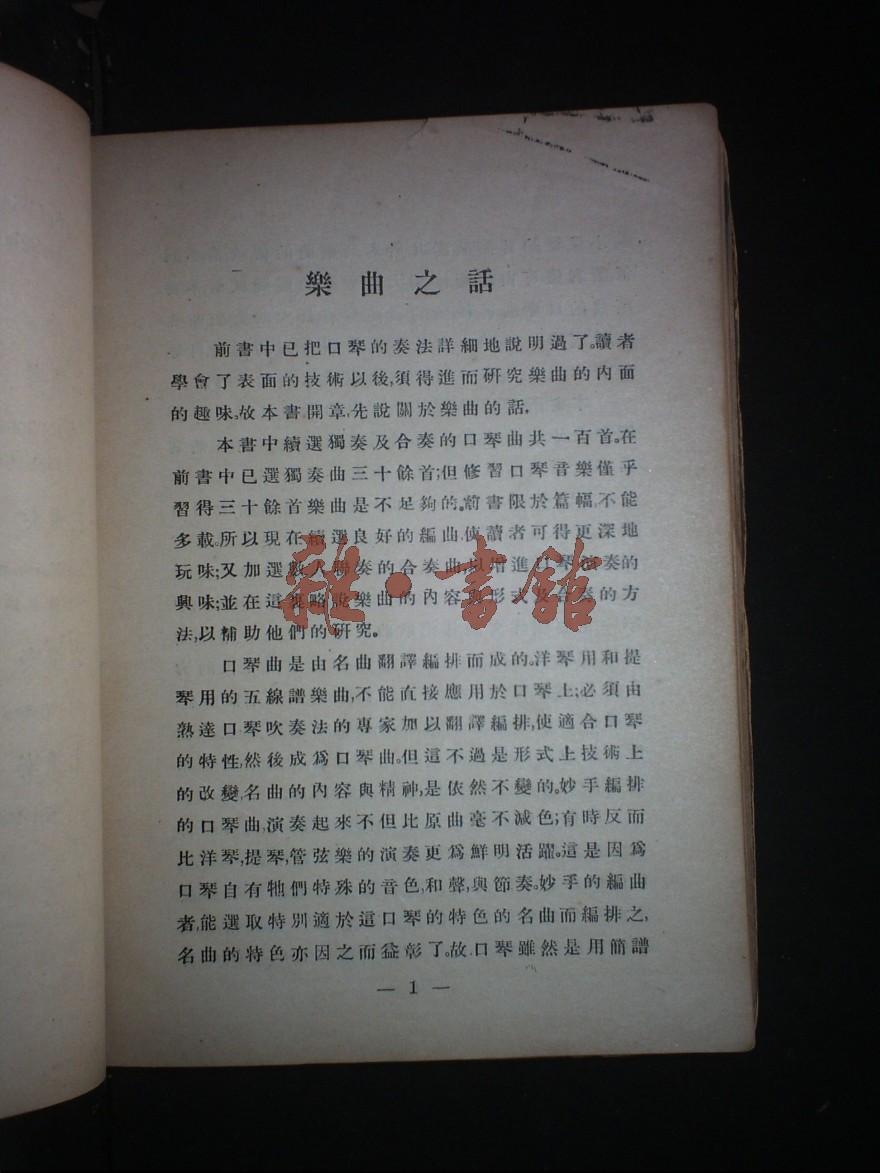 樂曲之話
前書中已把口琴的奏法詳細地說明過了。讀者
學會了表面的技術以後,須得進而研究樂曲的內面
的趣味。故本書開章,先說關於樂曲的話.
本書中續選獨奏及合奏的口琴曲共一百首。在
前書中已選獨奏曲三十餘首;但修習口琴音樂僅乎
習得三十餘首樂曲是不足夠的。前書限於篇幅,不能
多載。所以現在續選良好的編曲,使讀者可得更深地
玩味;又加選數人聯奏的合奏曲,以增進口琴演奏的
興味;並在這裏略說樂曲的內容與形式及合奏的方
法,以補助他們的研究。
口琴曲是由名曲翻譯編排而成的。洋琴用和提
琴用的五線譜樂曲,不能直接應用於口琴上;必須由
熟達口琴吹奏法的專家加以翻譯編排,使適合口琴
的特性,然後成爲口琴曲。但這不過是形式上技術上
的改變,名曲的內容與精神,是依然不變的。妙手編排
的口琴曲,演奏起來不但比原曲毫不減色;有時反而
比洋琴,提琴,管弦樂的演奏更爲鮮明活躍。這是因爲
口琴自有牠們特殊的音色,和聲,與節奏。妙手的編曲
者,能選取特別適於這口琴的特色的名曲而編排之,
名曲的特色亦因之而益彰了。故口琴雖然是用簡譜
— 1 —
雜·書館